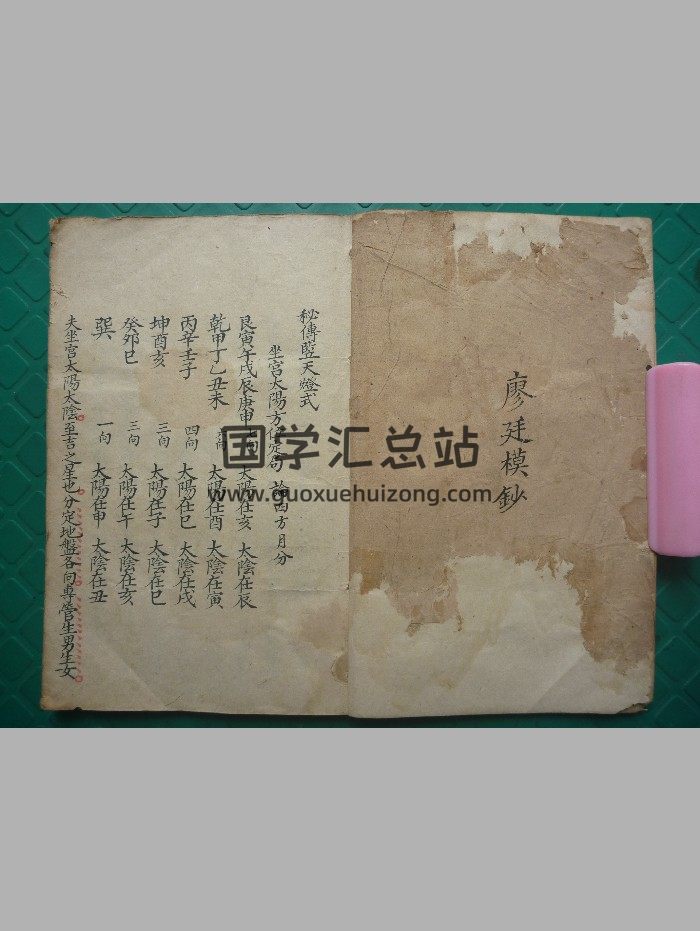 廖廷模鈔
秘傳藍天燈式
坐宮太陽方位定局 方月分
艮寅午戌辰庚申 向 太陽在亥 太陰在辰
乾甲丁乙丑未 向 太陽在酉 太陰在寅
丙辛壬子 四向 太陽在巳 太陰在戌
坤酉亥 三向 太陽在子 太陰在巳
癸卯巳 三向 太陽在午 太陰在亥
巽 一向 太陽在申 太陰在丑
夫坐宮太陽太陰至吉之星也分定地盤各向專管生男生女
国学汇总站
www.guoxuehuizong.com